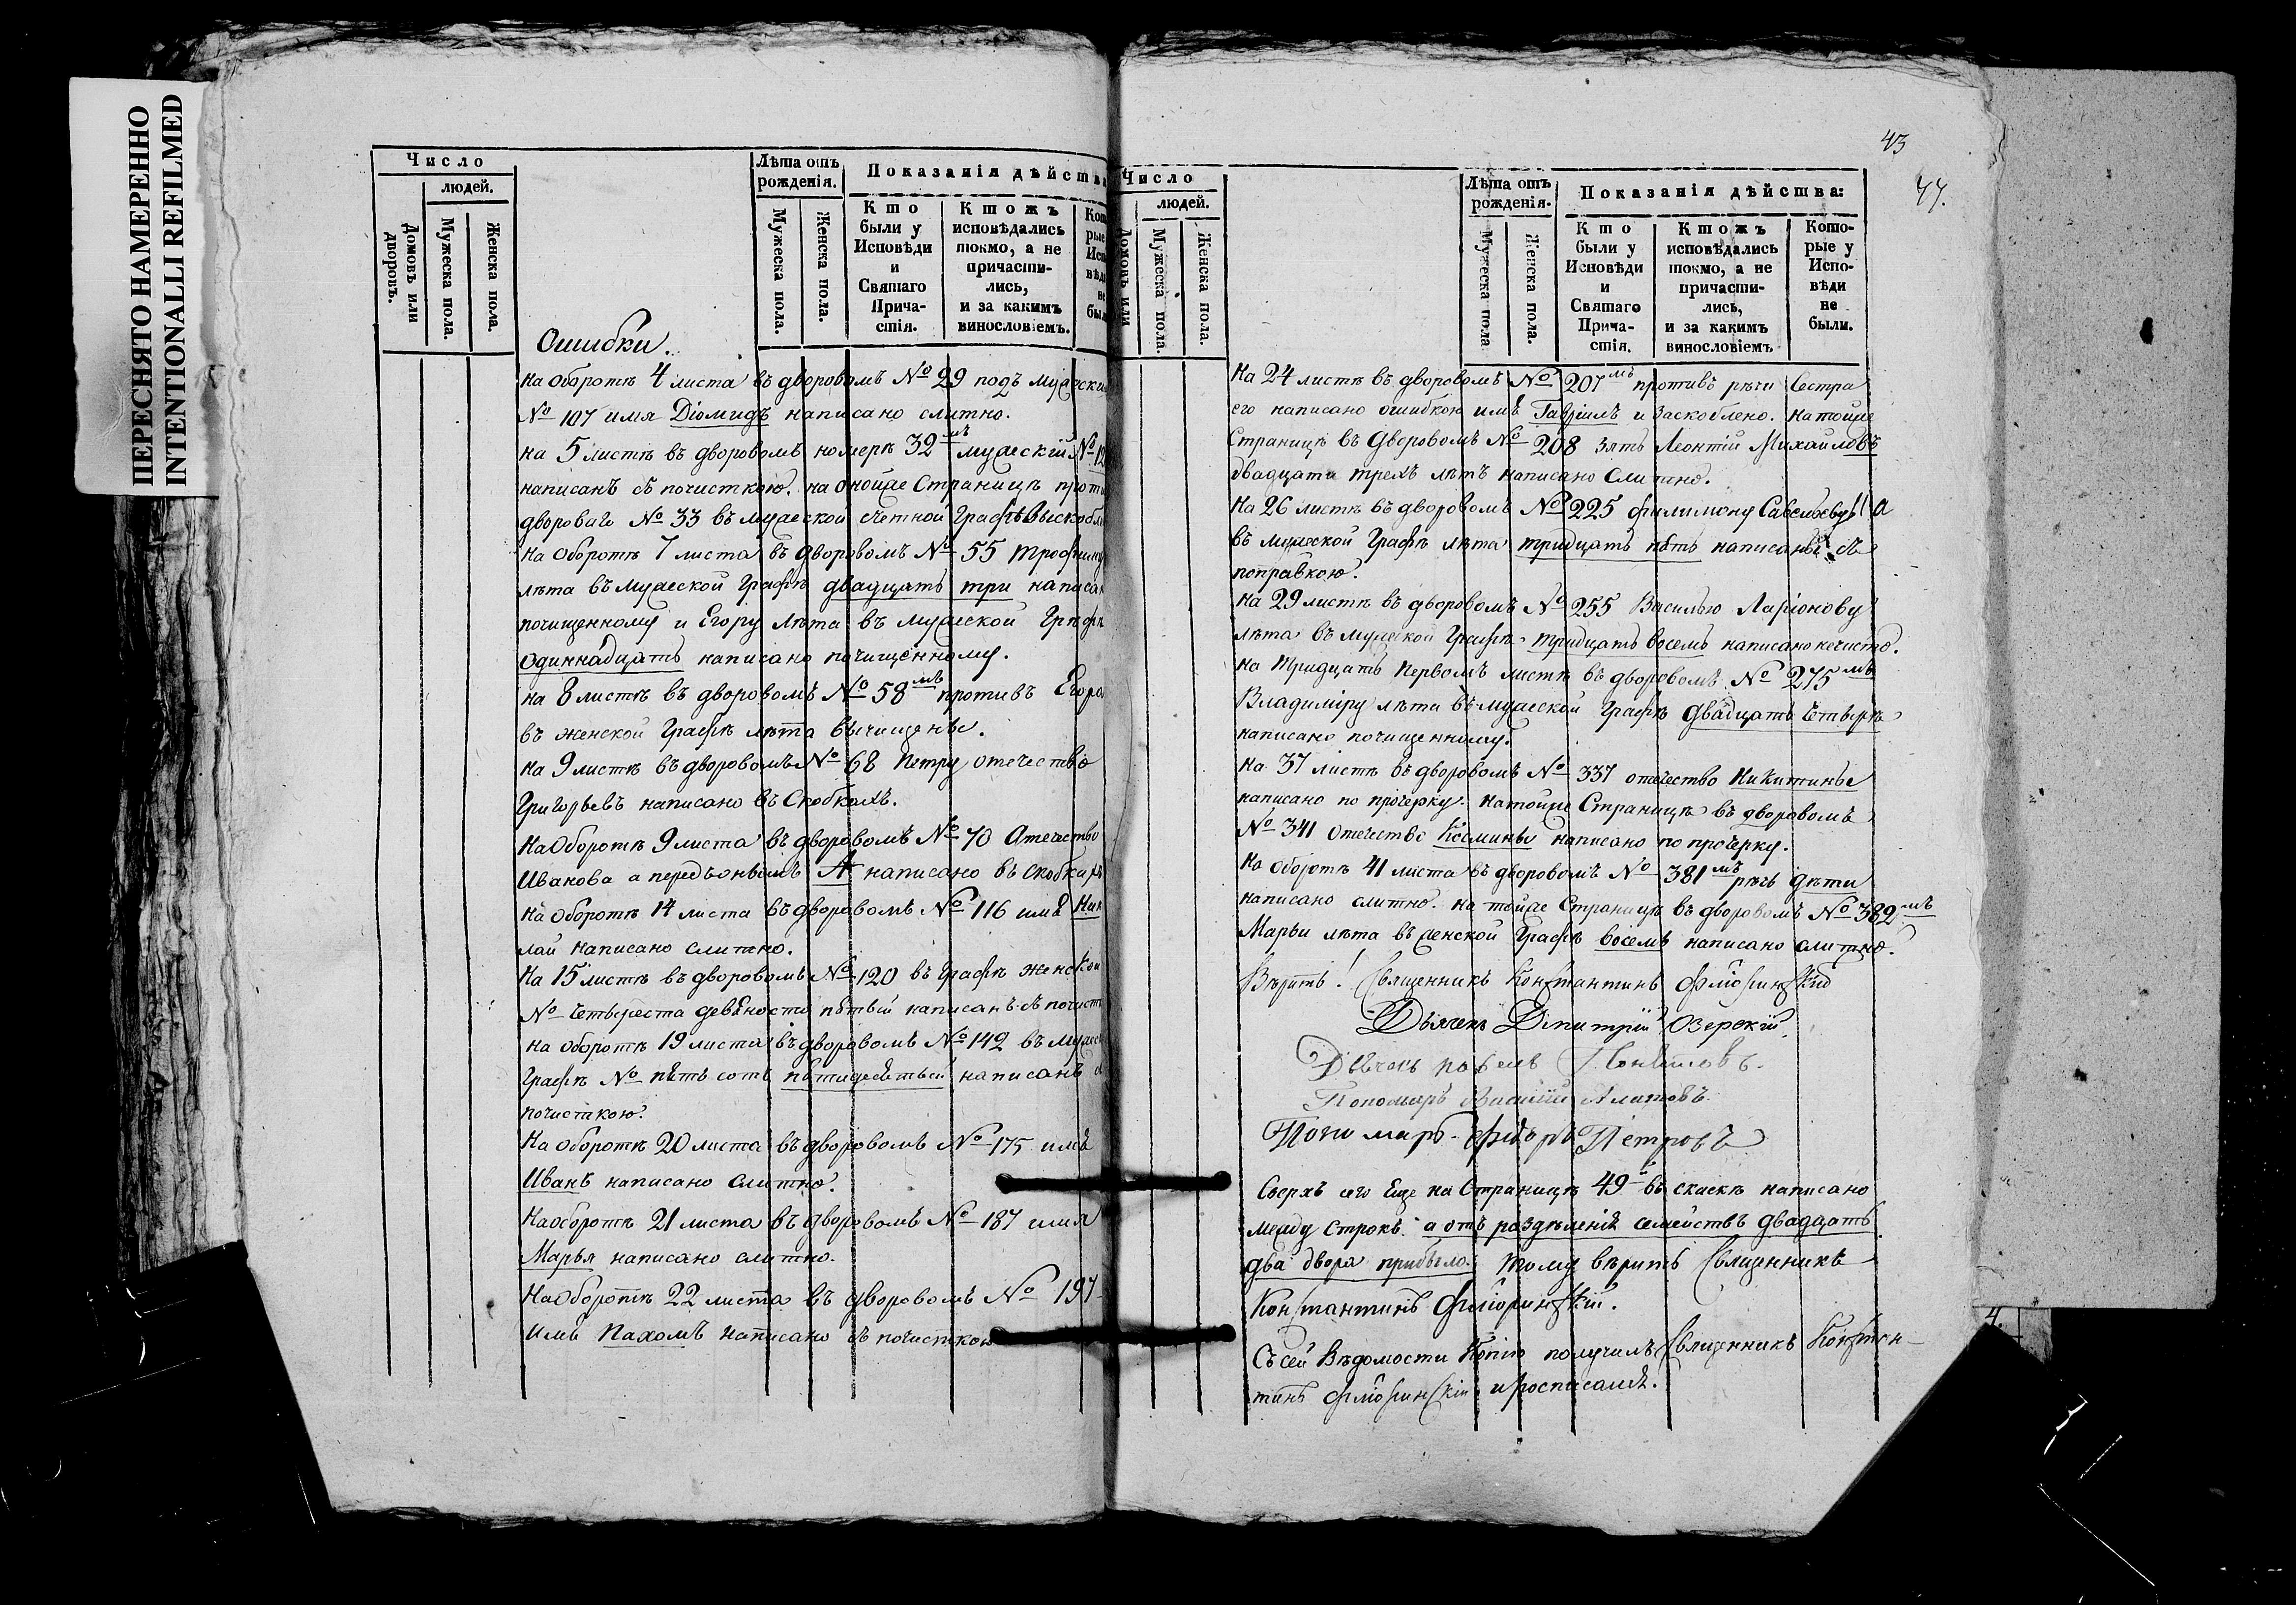 ПЕРЕСНЯТО НАМЕРЕННО
INTENTIONALLI REFILMED
Число
людей.
Домовъ или дворовъ.
Мужеска пола.
Женска пола.
Лѣта отъ рожденія.
Мужеска пола.
Женска пола.
Показанія дѣйства
Кто были у Исповѣди и Святаго Причастія.
Ктожъ исповѣдались токмо, а не причастились, и за какимъ винословіемъ.
Ошибки.
на оборотѣ 4 листа въ дворовомъ № 29 подъ
№ 107 имя Діомидъ написано слитно.
на 5 листѣ въ дворовомъ номерѣ 32мъ мужескій №
написанъ съ почисткою. на оной же Страницѣ
двороваго № 33 въ мужеской счетной Графѣ
на оборотѣ 7 листа въ дворовомъ № 55
лѣта въ мужеской Графѣ двадцать три
почищенному и Егору лѣта въ мужеской Графѣ
одиннадцать написано почищенному.
на 8 листѣ въ дворовомъ № 58мъ противъ
въ женской Графѣ лѣта вычищены.
на 9 листѣ въ дворовомъ № 68 Петру отечество
Григорьевъ написано въ Скобкахъ.
На Оборотѣ 9 листа въ дворовомъ № 70 Отечество
Иванова а передъ онымъ А написано въ скобкахъ
на оборотѣ 14 листа въ дворовомъ № 116 имѧ Ник
лай написано слитно.
На 15 листѣ въ дворовомъ № 120 въ Графѣ женской
№ Четыреста девѧносто пѧтый написанъ съ
на оборотѣ 19 листа въ дворовомъ № 142 въ
Графѣ № пѧть сотъ пѧтидесѧтый написанъ
почисткою.
На оборотѣ 20 листа въ дворовомъ № 175 имѧ
Иванъ написано Слитно.
На оборотѣ 21 листа въ дворовомъ № 187 имя
Марья написано слитно.
На Оборотѣ 22 листа въ дворовомъ № 197
Имѧ Пахомъ написано съ почисткою
43
44.
Число
людей.
Домовъ или
Мужеска пола.
Женска пола.
Лѣта отъ рожденія.
Мужеска пола
Женска пола.
Показанія дѣйства:
Кто были у Исповѣди и Святаго Причастія.
Ктожъ исповѣдались токмо, а не причастились, и за какимъ винословіемъ
Которые у Исповѣди не были.
На 24 листѣ въ дворовомъ № 207мъ противъ рѣчи Сестра
его написано ошибкою имѧ Гавріилъ и Заскоблено. на той же
Страницѣ въ Дворовомъ № 208 Зять Леонтій Михайловъ
двадцати трехъ лѣтъ написано Слитно.
На 26 листѣ въ дворовомъ № 225 Филимону Савельеву
въ мужеской Графѣ лѣта тридцать пѧть написаны съ
поправкою.
на 29 листѣ въ дворовомъ № 255 Василью Ларіонову
лѣта въ мужеской Графѣ тридцать восемь написано нечисто.
на Тридцать Первомъ листѣ въ дворовомъ № 275мъ
Владиміру лѣта въ мужеской Графѣ двадцать Четыре
написано почищенному.
на 37 листѣ въ дворовомъ № 337 отечество Никитины
написано по прочерку. на той же Страницѣ въ дворовомъ
№ 341 Отечество Косьмины написано по прочерку.
на оборотѣ 41 листа въ дворовомъ № 381мъ рѣчь дѣти
написано слитно. на той же Страницѣ въ дворовомъ № 382мъ
Марьи лѣта въ женской Графѣ восемь написано слитно.
Вѣрить! Священникъ Константинъ Фліоринскій
Дьячекъ Дімитрій Озерскій
Дьячекъ
Пономарь
Пономарь Петровъ
Сверхъ сего Еще на Страницѣ 49й въ скаскѣ написано
между строкъ: а отъ раздѣленія семействъ двадцать
два двора прибыло. тому вѣрить Священникъ
Константинъ Фліоринскій.
Съ сей Вѣдомости Копію получилъ Священникъ Констан-
тинъ Фліоринскій и росписался.